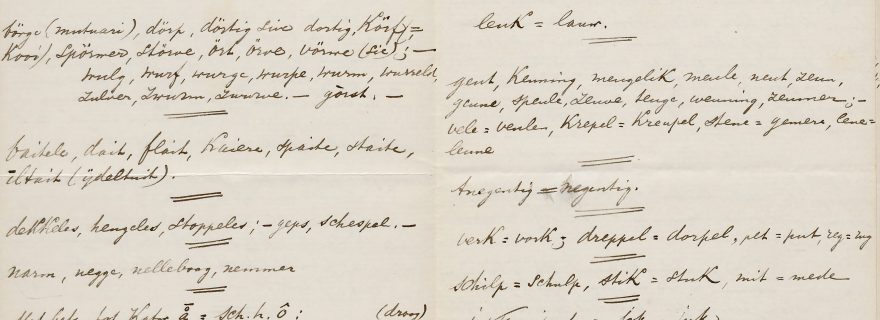 börge (mutuari), dörp, dörtig sive dortig, Körf (=
Kooi), spörmer, störve, ört, örve, vörme (sic); —
wulg, wurf, wurge, wurpe, wurm, wusseld,
zulver, zwurm, zwurve. — görst. —
baitele, dait, flait, Kaiere, spaite, staite,
iltait (ydeltuit).
dekkeles, hengeles, stoppeles; — geps, schespel. —
narm, negge, nelleboog, nemmer
å = sch. h. ô : (droog)
leuk = lauw.
geut, Kenning, mengelik, meule, neut, zeun,
geune, speule, zeuve, teuge, wenning, zeumer; —
vele = veulen, Krepel = Kreupel, stene = gemere, lene =
leune
Anegentig = negentig.
verk = vork; dreppel = dorpel, pet = put, reg = rug
schilp = schulp, stik = stuk, mit = mede